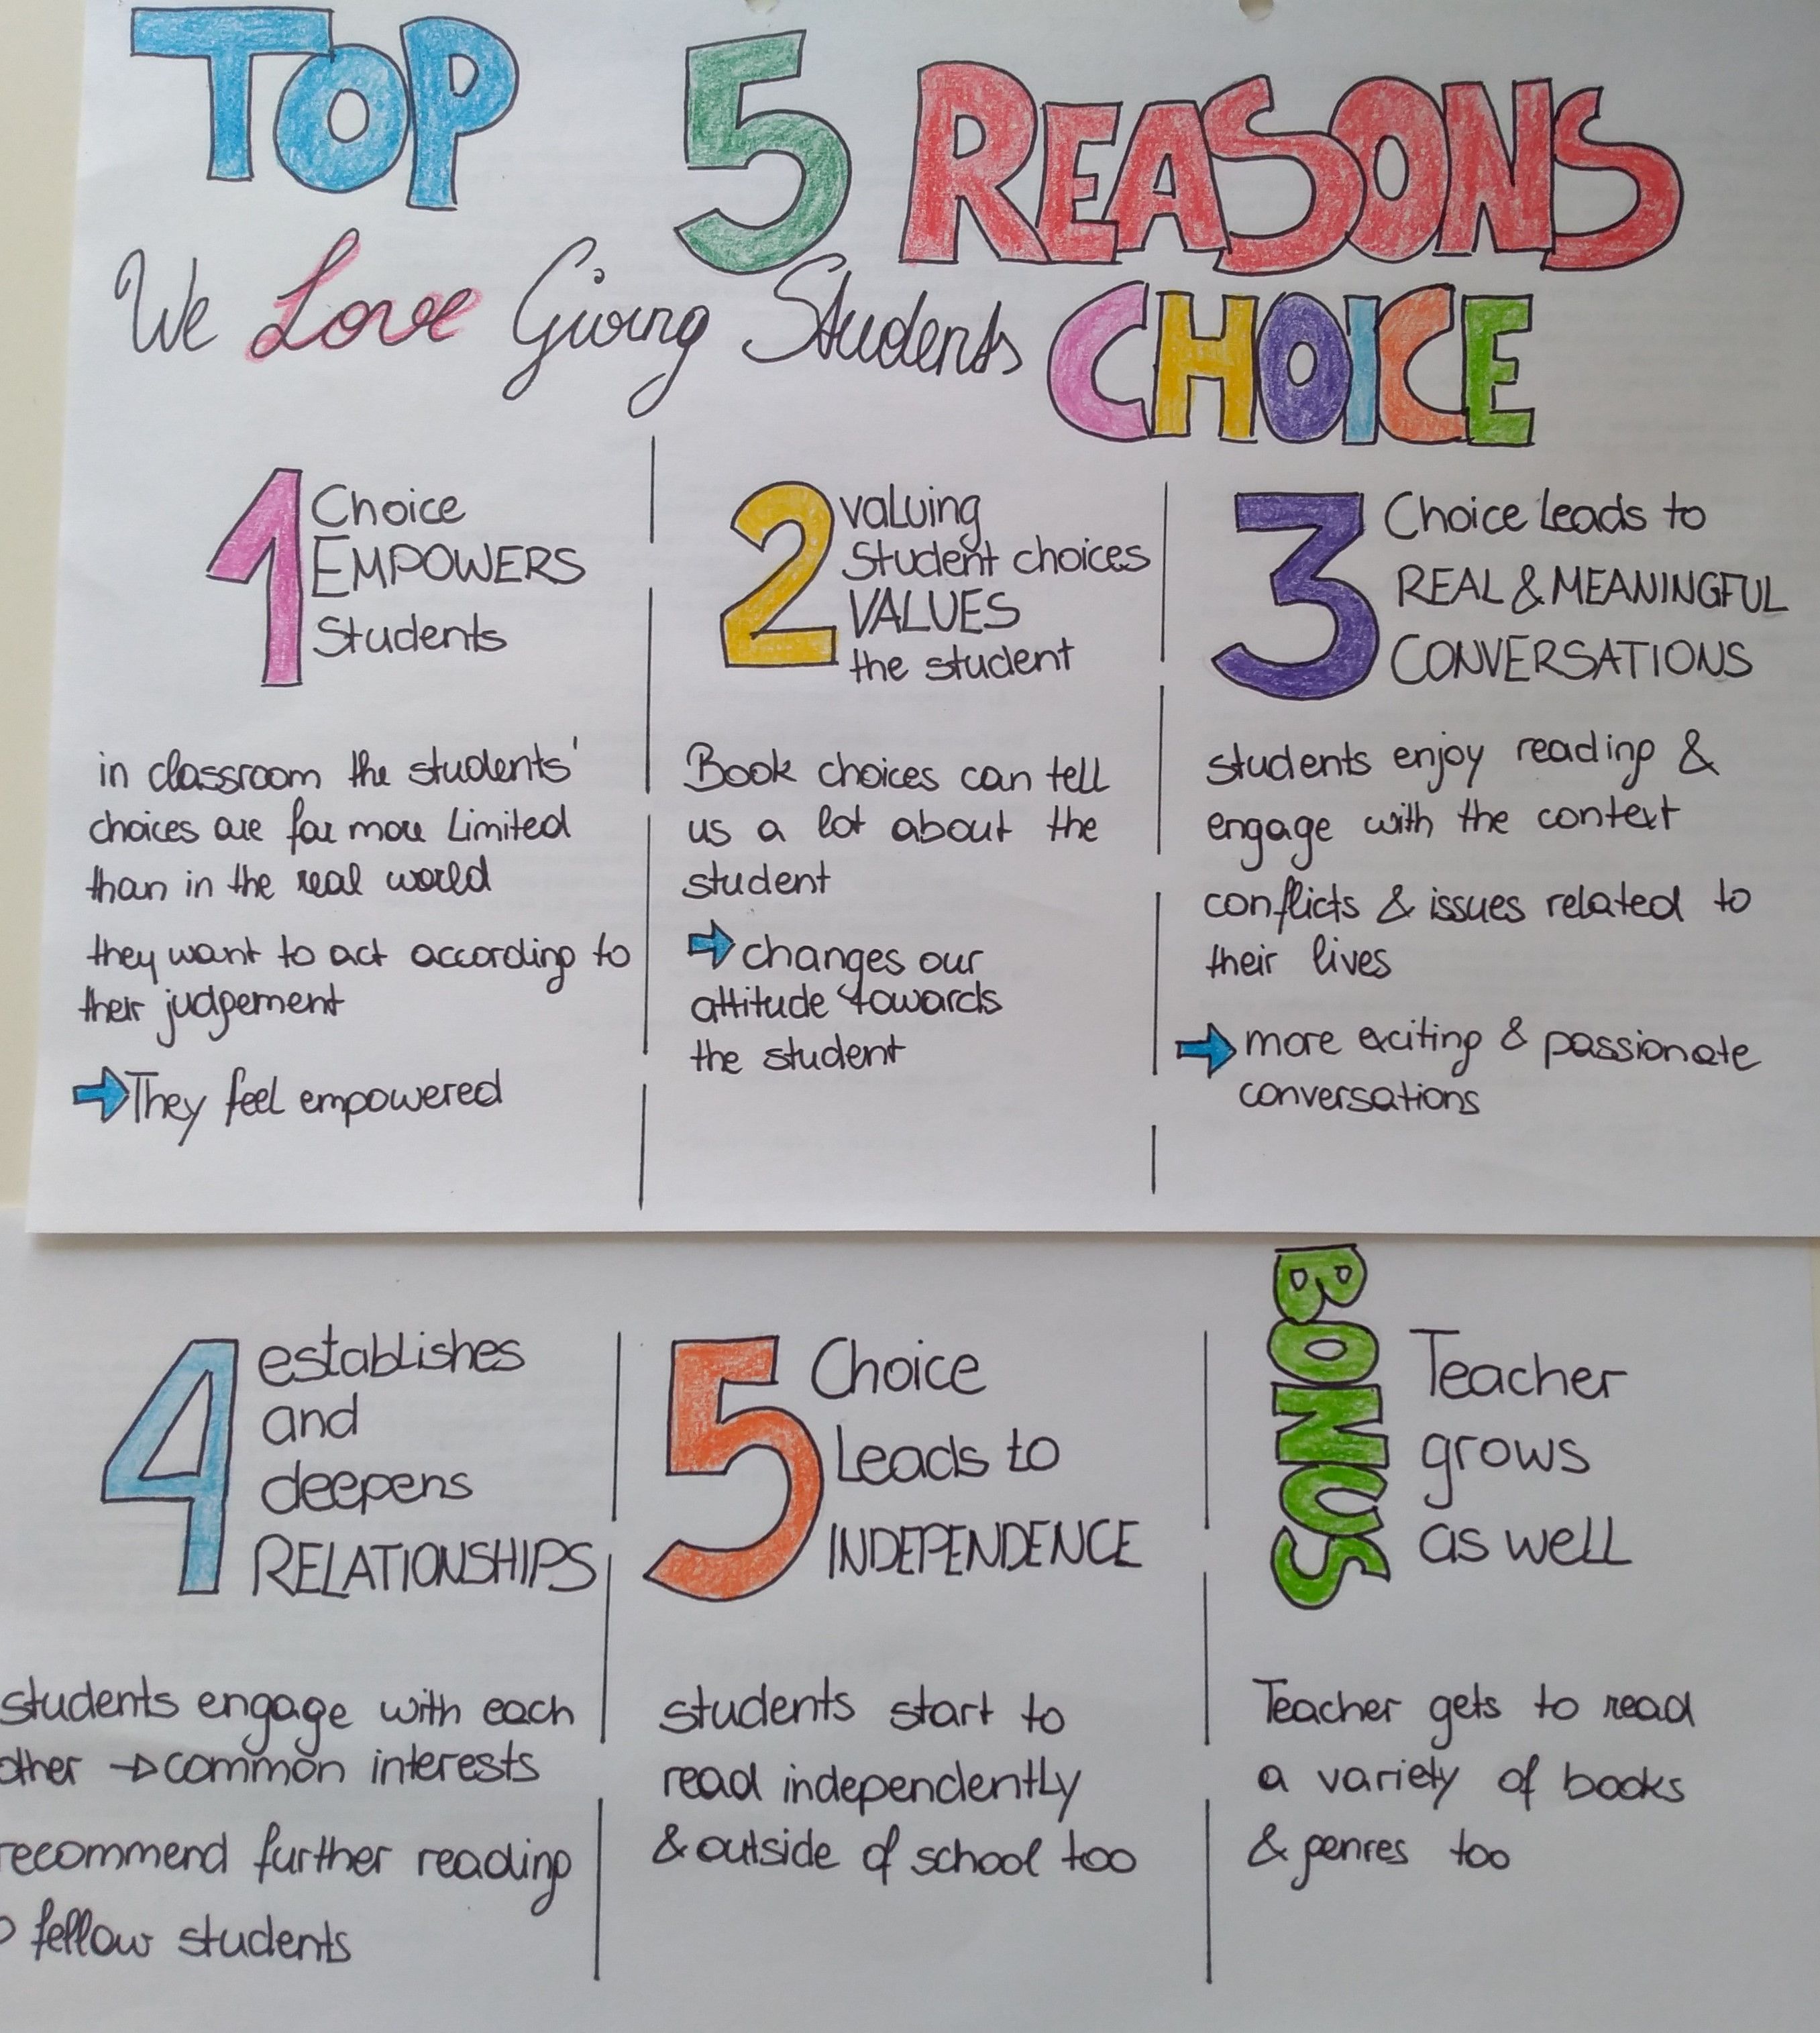 TOP 5 REASONS
We Love Giving Students CHOICE
1 Choice
EMPOWERS
Students
in classroom the students'
choices are far more Limited
than in the real world
they want to act according to
their judgement
They feel empowered
2 valuing
Student choices
VALUES
the student
Book choices can tell
us a lot about the
student
changes our
attitude towards
the student
3 Choice Leads to
REAL & MEANINGFUL
CONVERSATIONS
students enjoy reading &
engage with the context
conflicts & issues related to
their lives
more exciting & passionate
conversations
4 establishes
and
deepens
RELATIONSHIPS
students engage with each
other → common interests
recommend further reading
fellow students
5 Choice
Leads to
INDEPENDENCE
students start to
read independently
& outside of school too
BONUS
Teacher
grows
as well
Teacher gets to read
a variety of books
& genres too